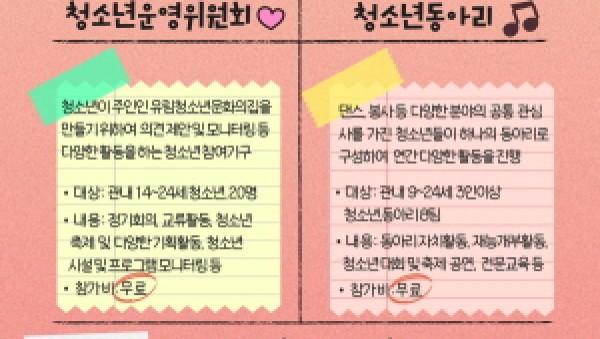 청소년운영위원회
청소년이 주인인 유림청소년문화의집을
만들기 위하여 의견 제안 및 모니터링 등
다양한 활동을 하는 청소년 참여기구
• 대상: 관내 14~24세 청소년, 20명
• 내용: 정기회의, 교류활동, 청소년
축제 및 다양한 기획활동, 청소년
시설 및 프로그램 모니터링 등
• 참가비: 무료
청소년동아리
댄스, 봉사 등 다양한 분야의 공통 관심
사를 가진 청소년들이 하나의 동아리로
구성하여 연간 다양한 활동을 진행
• 대상: 관내 9~24세 3인이상
청소년동아리 8팀
• 내용: 동아리 자치활동, 재능기부활동,
청소년 대회 및 축제 공연, 전문교육 등
• 참가비: 무료